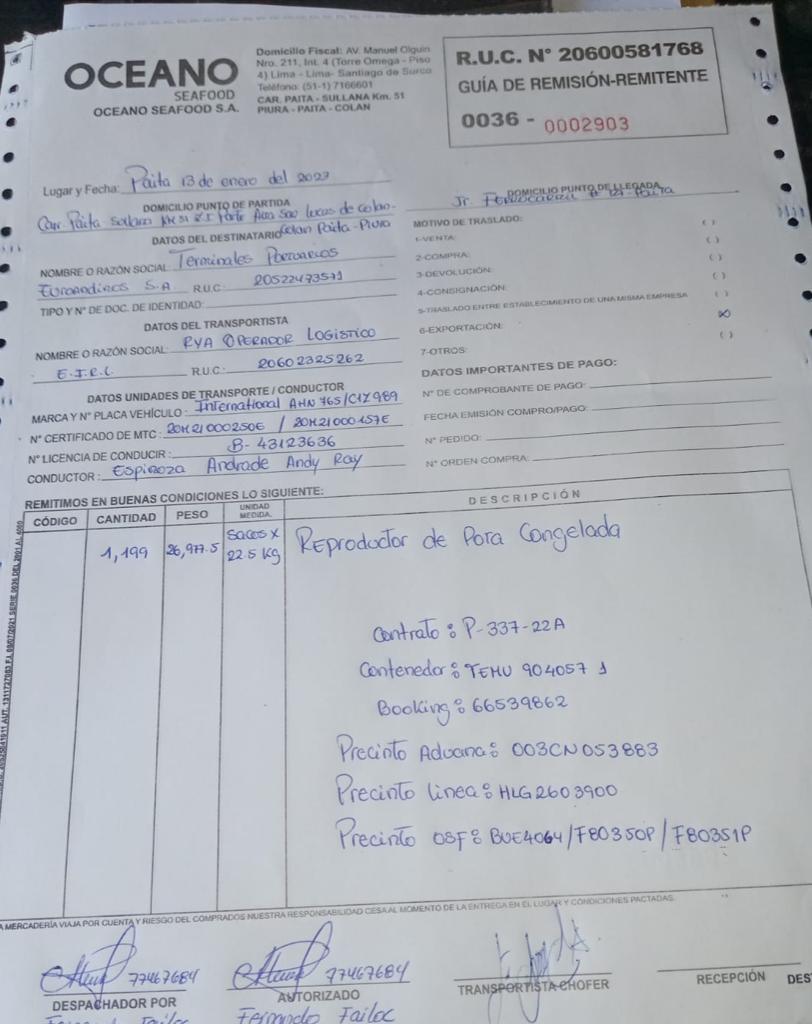 OCEANO
SEAFOOD
OCEANO SEAFOOD S.A.
Domicilio Fiscal: AV. Manuel Olguin
Nro. 211, Int. 4 (Torre Omega - Piso
4) Lima - Lima- Santiago de Surco
Teléfono: (51-1) 7166601
CAR. PAITA - SULLANA Km. 51
PIURA - PAITA - COLAN
R.U.C. N° 20600581768
GUÍA DE REMISIÓN-REMITENTE
0036 - 0002903
Lugar y Fecha: Paita 13 de enero del 2023
DOMICILIO PUNTO DE PARTIDA
Car. Paita Sullana Km 51 Parte Alta San Lucas de Colan-
Colan Paita-Piura
DOMICILIO PUNTO DE LLEGADA
Jr. Ferrocarril # Paita
DATOS DEL DESTINATARIO
NOMBRE O RAZÓN SOCIAL: Terminales Portuarios
Euroandinos S.A R.U.C: 20522473571
TIPO Y N° DE DOC. DE IDENTIDAD:
DATOS DEL TRANSPORTISTA
NOMBRE O RAZÓN SOCIAL: RYA OPERADOR LOGISTICO
E.I.R.L R.U.C: 20602325262
DATOS UNIDADES DE TRANSPORTE / CONDUCTOR
MARCA Y N° PLACA VEHÍCULO: International AHN 765/C1Z989
N° CERTIFICADO DE MTC: 20M21000250E / 20M21000157E
N° LICENCIA DE CONDUCIR: B-43123636
CONDUCTOR: Espinoza Andrade Andy Ray
MOTIVO DE TRASLADO:
1-VENTA: ( )
2-COMPRA: ( )
3-DEVOLUCIÓN: ( )
4-CONSIGNACIÓN: ( )
5-TRASLADO ENTRE ESTABLECIMIENTO DE UNA MISMA EMPRESA ( )
6-EXPORTACIÓN: (X)
7-OTROS: ( )
DATOS IMPORTANTES DE PAGO:
N° DE COMPROBANTE DE PAGO:
FECHA EMISIÓN COMPRO/PAGO:
N° PEDIDO:
N° ORDEN COMPRA:
REMITIMOS EN BUENAS CONDICIONES LO SIGUIENTE:
CÓDIGO CANTIDAD PESO UNIDAD MEDIDA. DESCRIPCIÓN
1,199 26,977.5 Sacos x 22.5 Kg Reproductor de Pota Congelada
Contrato: P-337-22A
Contenedor: TEMU 904057 1
Booking: 66539862
Precinto Aduana: 003CN053883
Precinto Linea: HLG2603900
Precinto OSF: BUE4064/F80350P/F80351P
A MERCADERÍA VIAJA POR CUENTA Y RIESGO DEL COMPRADOS NUESTRA RESPONSABILIDAD CESA AL MOMENTO DE LA ENTREGA EN EL LUGAR Y CONDICIONES PACTADAS.
77467684
DESPACHADOR POR
77467684
AUTORIZADO
Fernando Failoc
TRANSPORTISTA-CHOFER
RECEPCIÓN
DES